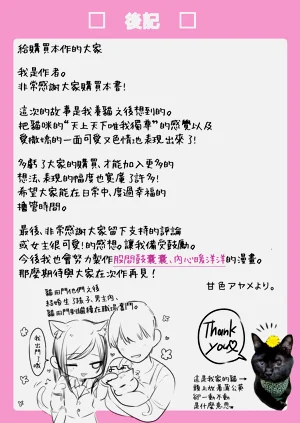 後記
給購買本作的大家
我是作者。
非常感謝大家購買本書!
這次的故事是我看貓之後想到的。
把貓咪的“天上天下唯我獨尊”的感覺以及
愛撒嬌的一面可愛又色情地表現出來了!
多虧了大家的購買,才能加入更多的
想法、表現的幅度也寬廣了許多!
希望大家能在日常中、度過幸福的
擼管時間。
最後、非常感謝大家留下支持的評論
或女主很可愛!的感想。讓我備受鼓勵。
今後我也會努力製作股間鼓囊囊、內心暖洋洋的漫畫。
那麼期待與大家在次作再見!
甘色アヤメより。
他們之後
結婚生了孩子、男主內、
在職場奮鬥。
我出門了哦
Thank
you♡
這是我家的貓→
頭上放著蒲公英
卻一動不動
是什麼意思